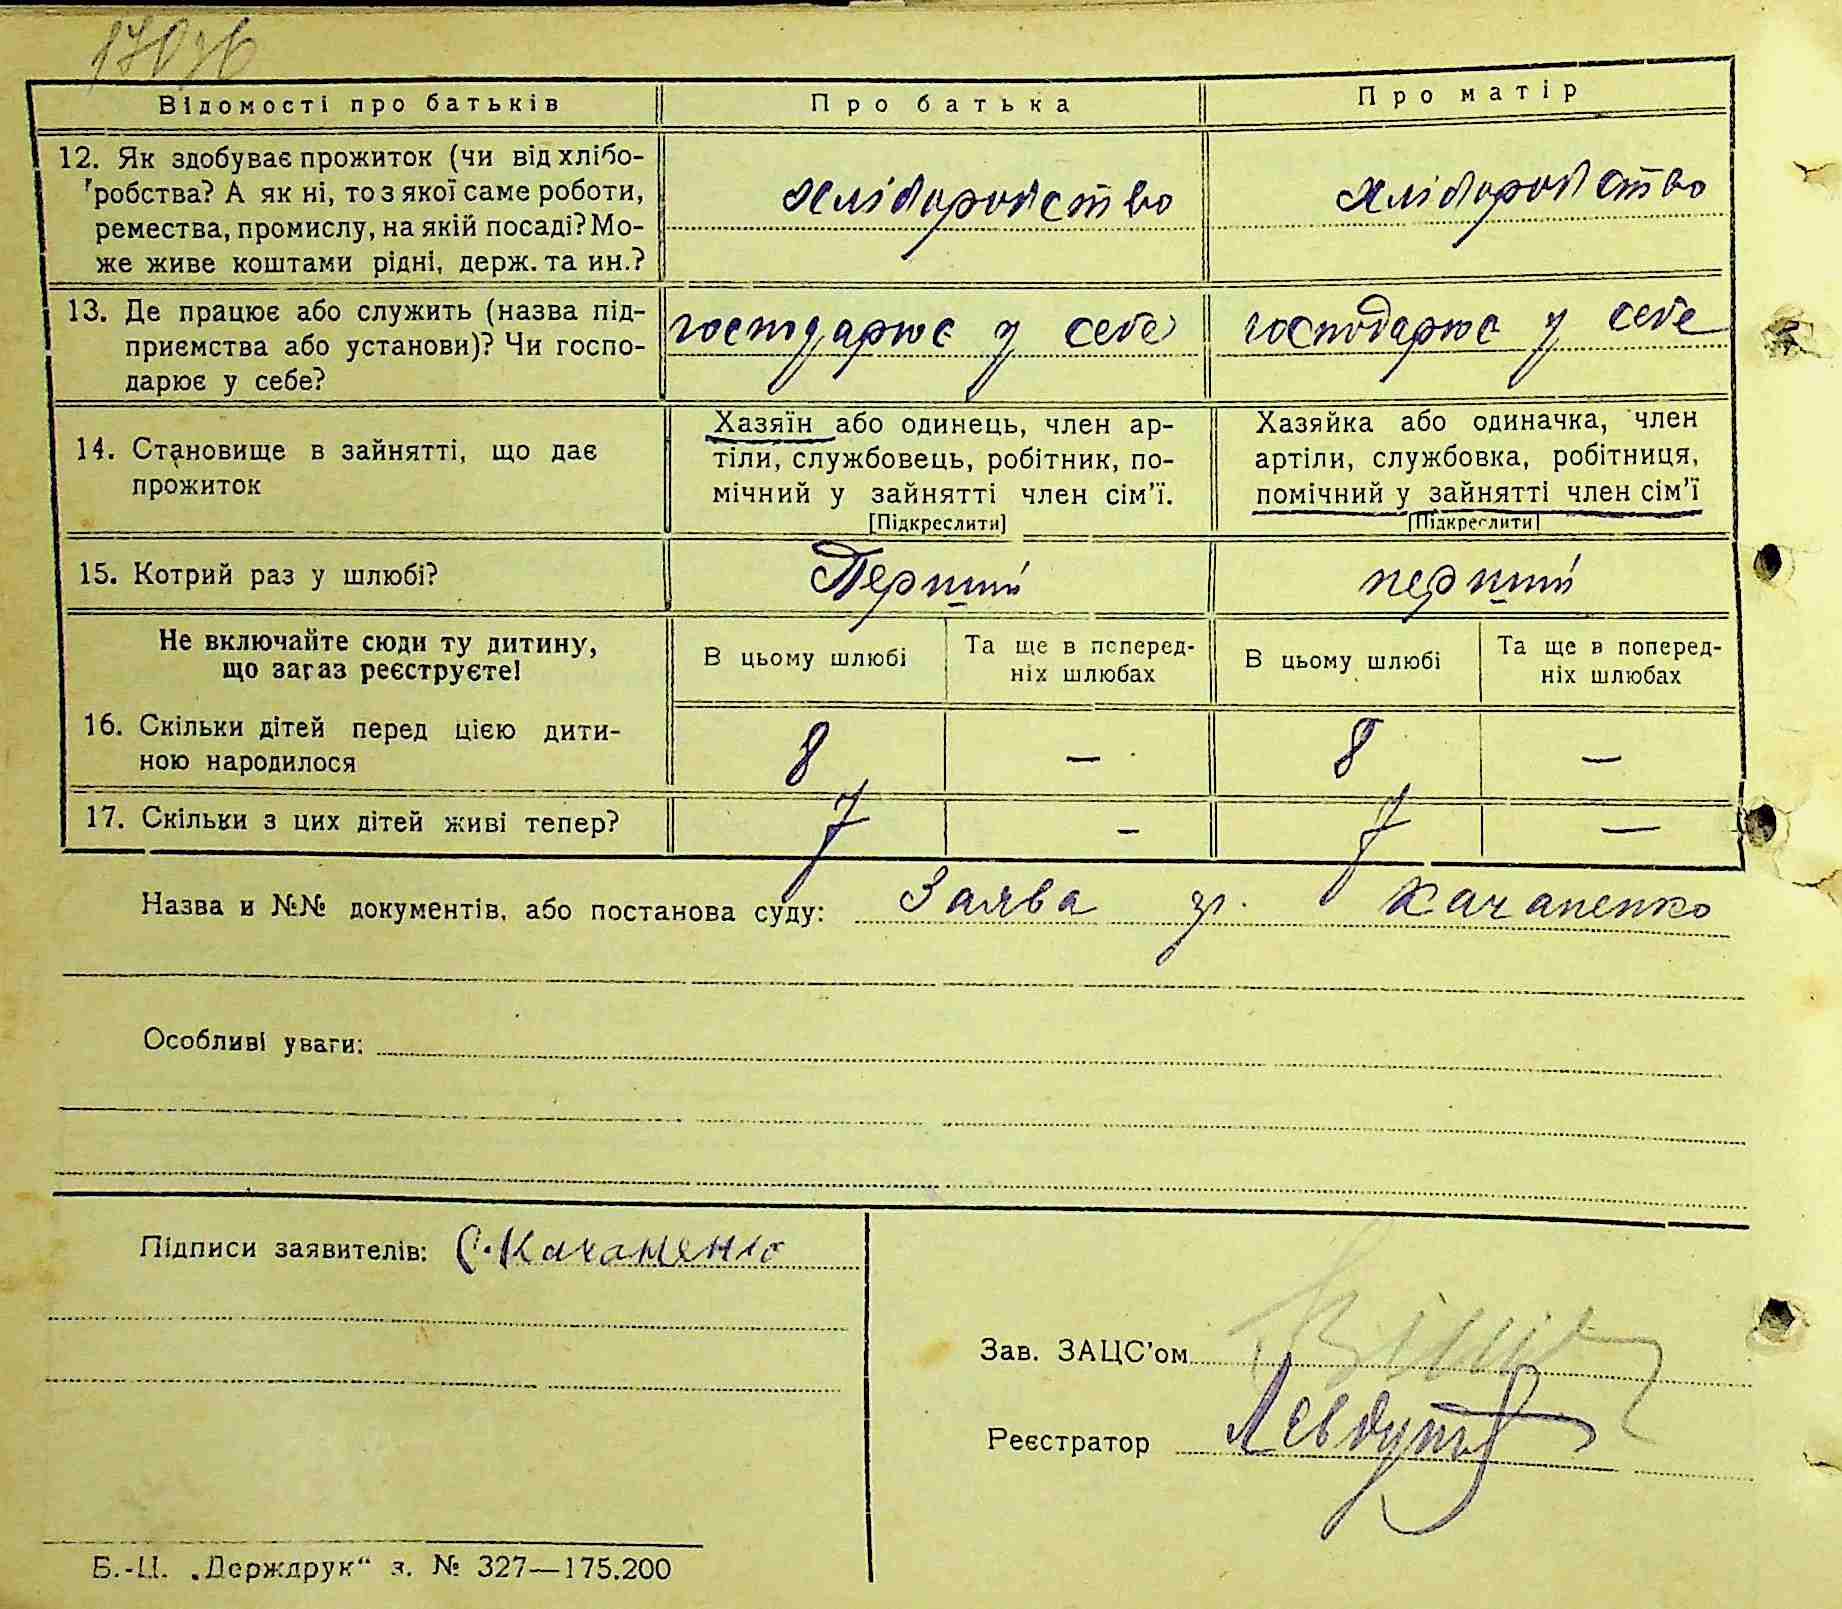 Відомості про батьків
Про батька
Про матір
12. Як здобуває прожиток (чи від хлібо-
робства? А як ні, то з якої саме роботи,
ремества, промислу, на якій посаді? Мо-
же живе коштами рідні, держ. та ин.?
хліборобство
хліборобство
13. Де працює або служить (назва під-
приємства або установи)? Чи госпо-
дарює у себе?
господарює у себе
господарює у себе
14. Становище в зайнятті, що дає
прожиток
Хазяїн або одинець, член ар-
тіли, службовець, робітник, по-
мічний у зайнятті член сім'ї.
[Підкреслити]
Хазяйка або одиначка, член
артіли, службовка, робітниця,
помічний у зайнятті член сім'ї
[Підкреслити]
15. Котрий раз у шлюбі?
Перший
перший
Не включайте сюди ту дитину,
що зараз реєструєте!
В цьому шлюбі
Та ще в поперед-
ніх шлюбах
В цьому шлюбі
Та ще в поперед-
ніх шлюбах
16. Скільки дітей перед цією дити-
ною народилося
8 — 8 —
17. Скільки з цих дітей живі тепер?
7 — 7 —
Назва и №№ документів, або постанова суду: Заява гр. Качаненко
Особливі уваги:
Підписи заявителів: С. Качаненко
Зав. ЗАЦС'ом
Реєстратор
Б.-Ц. „Держдрук“ з. № 327—175.200